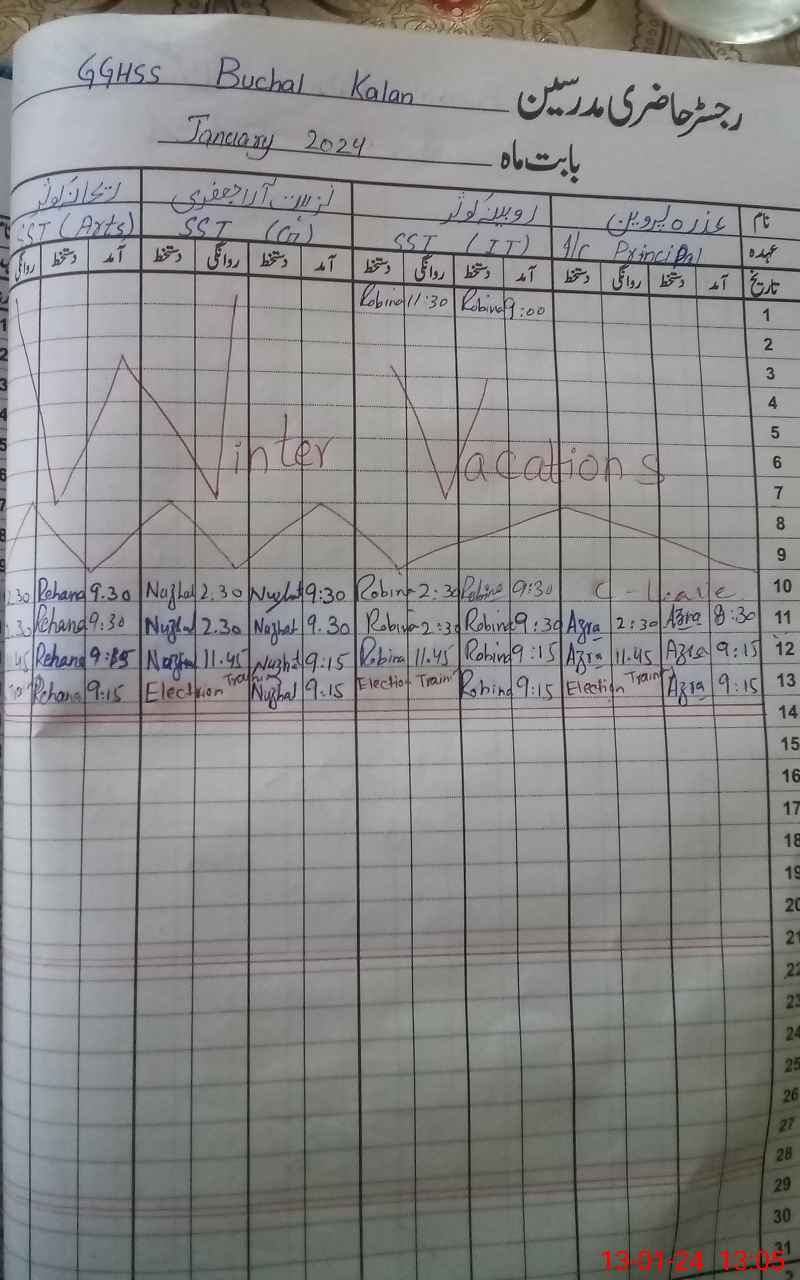 GGHSS Buchal Kalan رجسٹر حاضری مدرسین
January 2024 بابت ماہ
نام عذرہ پروین روبینہ کوثر نزہت آراجعفری ریحانہ کوثر
عہدہ A/c Principal SST (IT) SST (G) SST (Arts)
تاریخ آمد دستخط روانگی دستخط آمد دستخط روانگی دستخط آمد دستخط روانگی دستخط آمد دستخط روانگی
Robina 11:30 Robina 9:00 1
2
3
4
5
Winter Vacations 6
7
8
9
2.30 Rehana 9.30 Nuzhat 2.30 Nuzhat 9:30 Robina 2:30 Robina 9:30 C-Leave 10
2.30 Rehana 9:30 Nuzhat 2.30 Nuzhat 9.30 Robina 2:30 Robina 9:30 Azra 2:30 Azra 8:30 11
45 Rehana 9:15 Nuzhat 11.45 Nuzhat 9:15 Robina 11.45 Robina 9:15 Azra 11.45 Azra 9:15 12
Rehana 9:15 Election Training Nuzhat 9:15 Election Train Robina 9:15 Election Train Azra 9:15 13
14
15
16
17
18
19
20
21
22
23
24
25
26
27
28
29
30
31
13-01-24 13:05